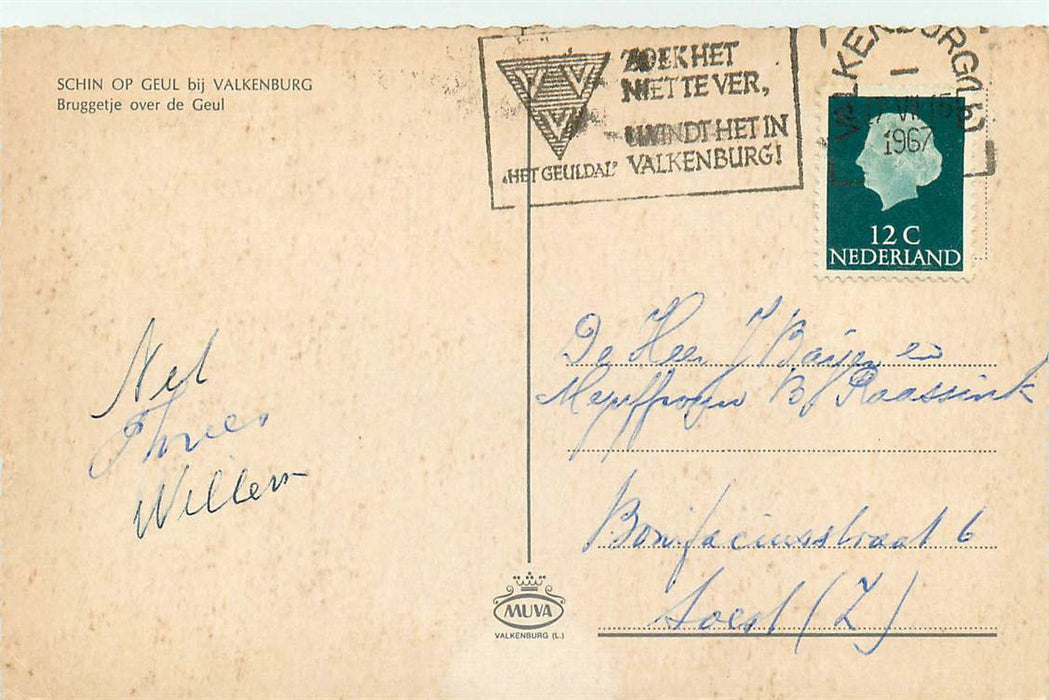 SCHIN OP GEUL bij VALKENBURG
Bruggetje over de Geul
VVV
„HET GEULDAL"
ZOEK HET
NIET TE VER,
U VINDT HET IN
VALKENBURG!
VALKENBURG (L)
1967
12 C
NEDERLAND
Nel
Willem
De Heer J Baijer en
B. Raassink
Bonifaciusstraat 6
Soest (Z)
MUVA
VALKENBURG (L.)